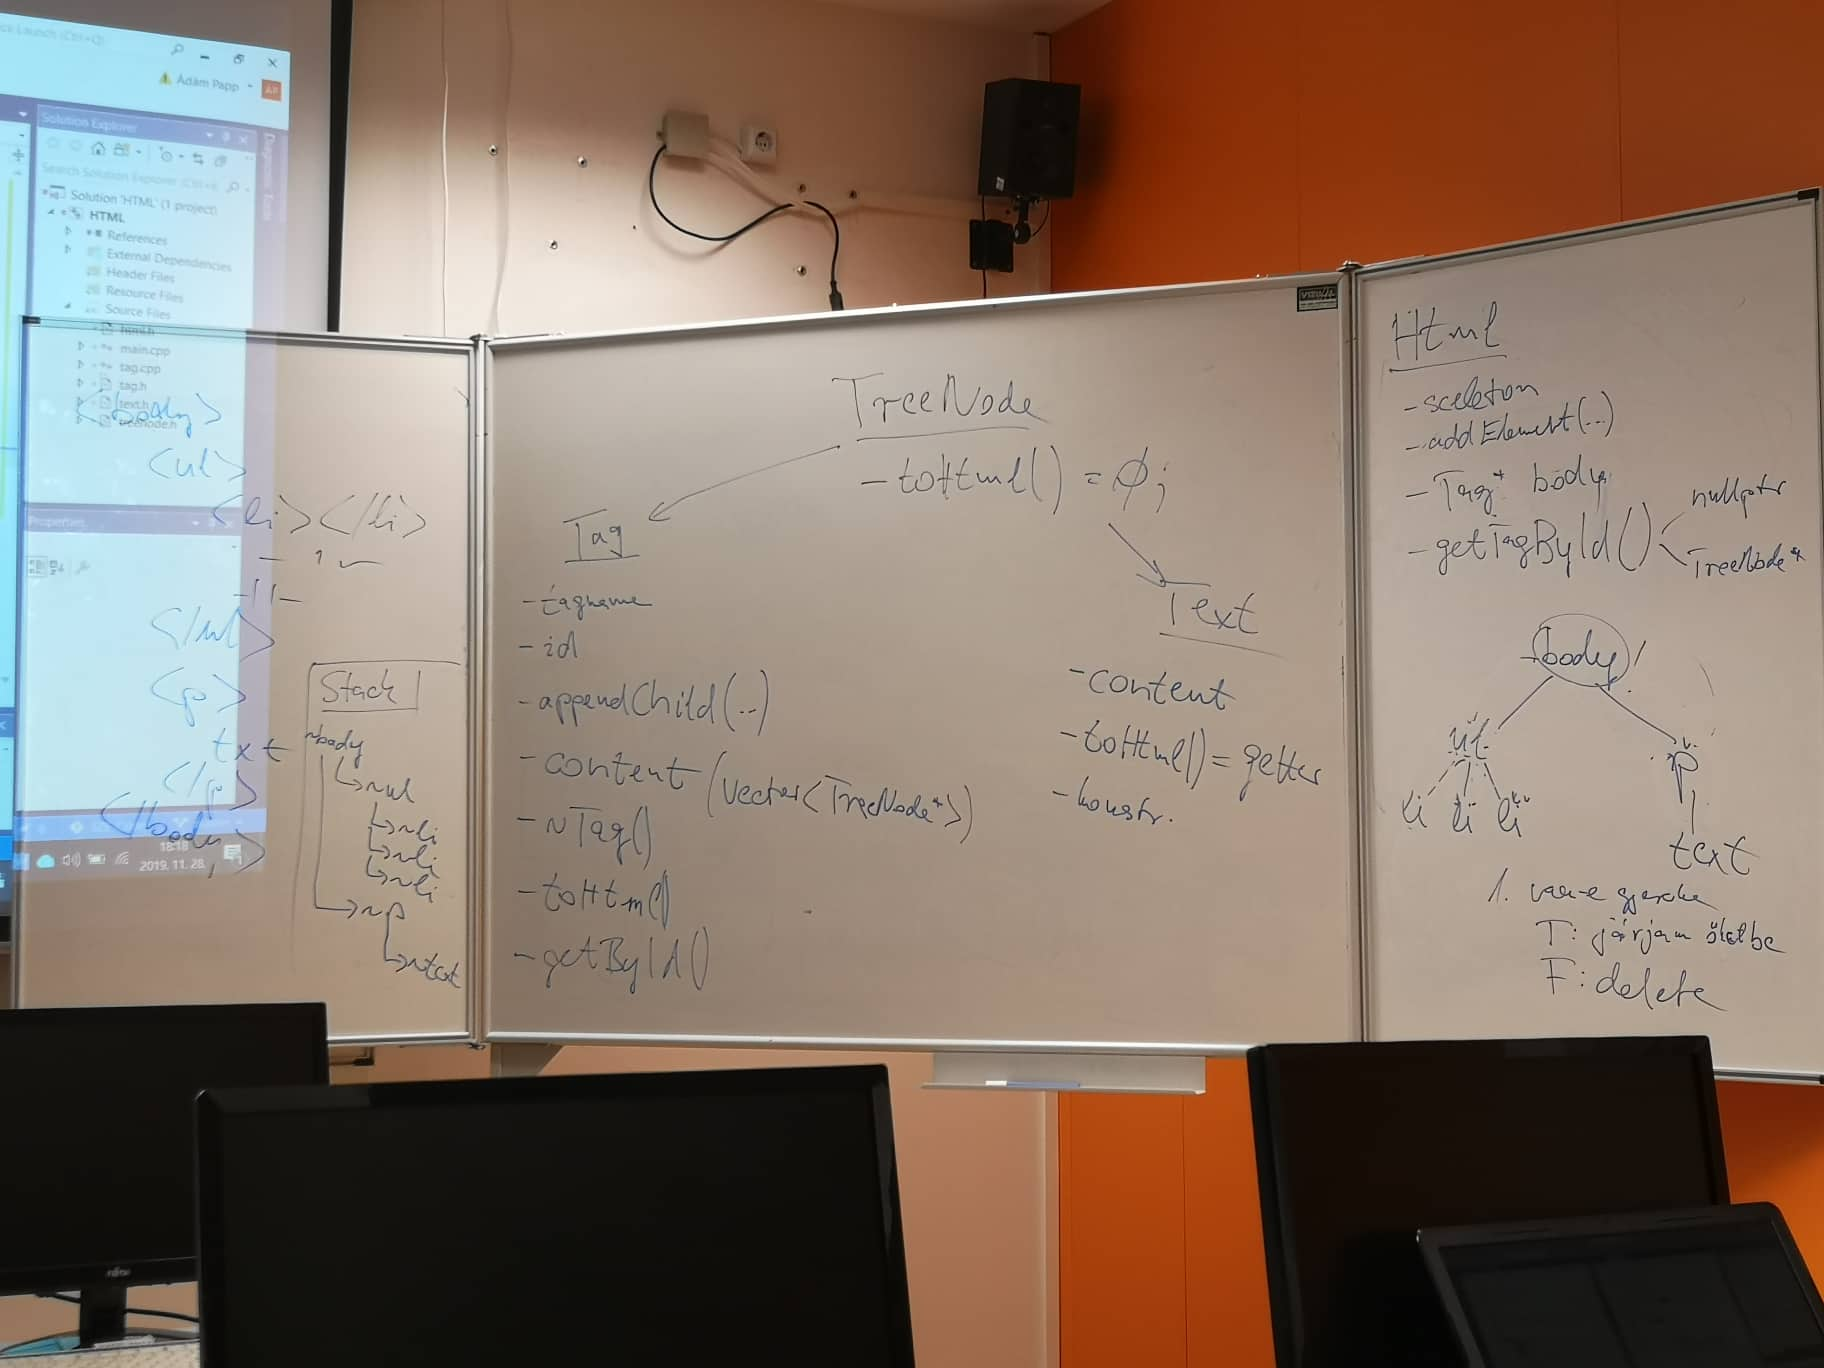 Launch (Ctrl+Q)
Ádám Papp
AP
Solution Explorer
Search Solution Explorer (Ctrl+
Solution 'HTML' (1 project)
HTML
References
External Dependencies
Header Files
Resource Files
Source Files
html.h
main.cpp
tag.cpp
tag.h
text.h
treenode.h
Properties
Diagnostic Tools
18:18
2019. 11. 28.
<body>
<ul>
<li></li>
— " —
— " —
</ul>
<p>
txt
</p>
</body>
Stack
~body
↳~ul
↳~li
↳~li
↳~li
↳~p
↳~txt
TreeNode
- toHtml() = 0;
Tag
- tagname
- id
- appendChild(..)
- content (vector<TreeNode*>)
- ~Tag()
- toHtml()
- getById()
Text
- content
- toHtml() = getter
- konstr.
Html
- sceleton
- addElement(...)
- Tag* body
- getTagById()
nullptr
TreeNode*
body
ul
p
li li li
text
1. van-e gyereke
T: járjam őket be
F: delete
FUJITSU